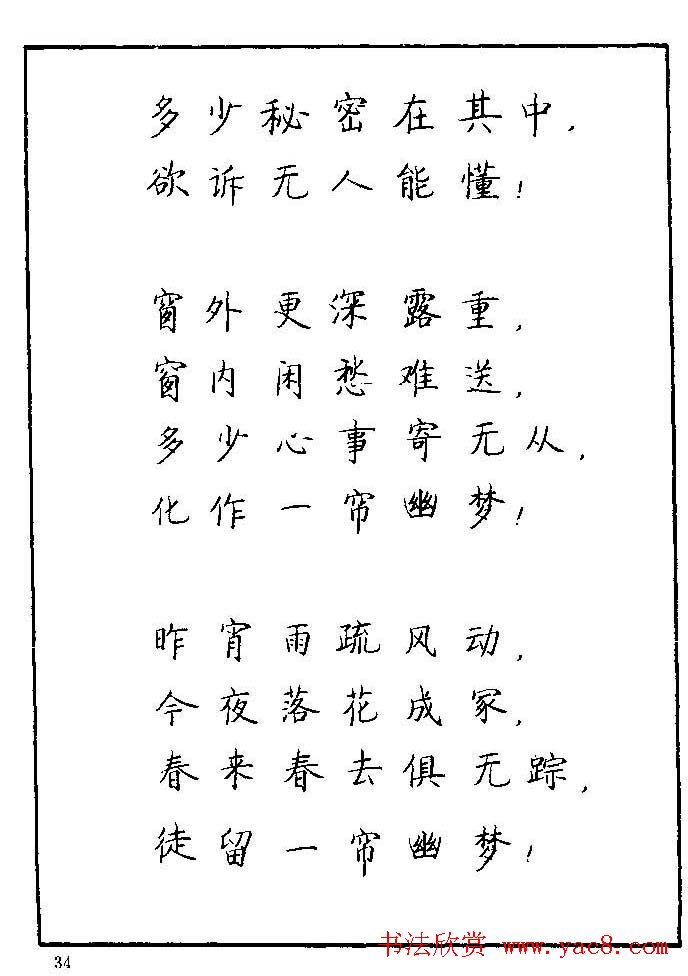 多少秘密在其中，
欲诉无人能懂！
窗外更深露重，
窗内闲愁难送，
多少心事寄无从，
化作一帘幽梦！
昨宵雨疏风动，
今夜落花成冢，
春来春去俱无踪，
徒留一帘幽梦！
34
书法欣赏 www.yac8.com